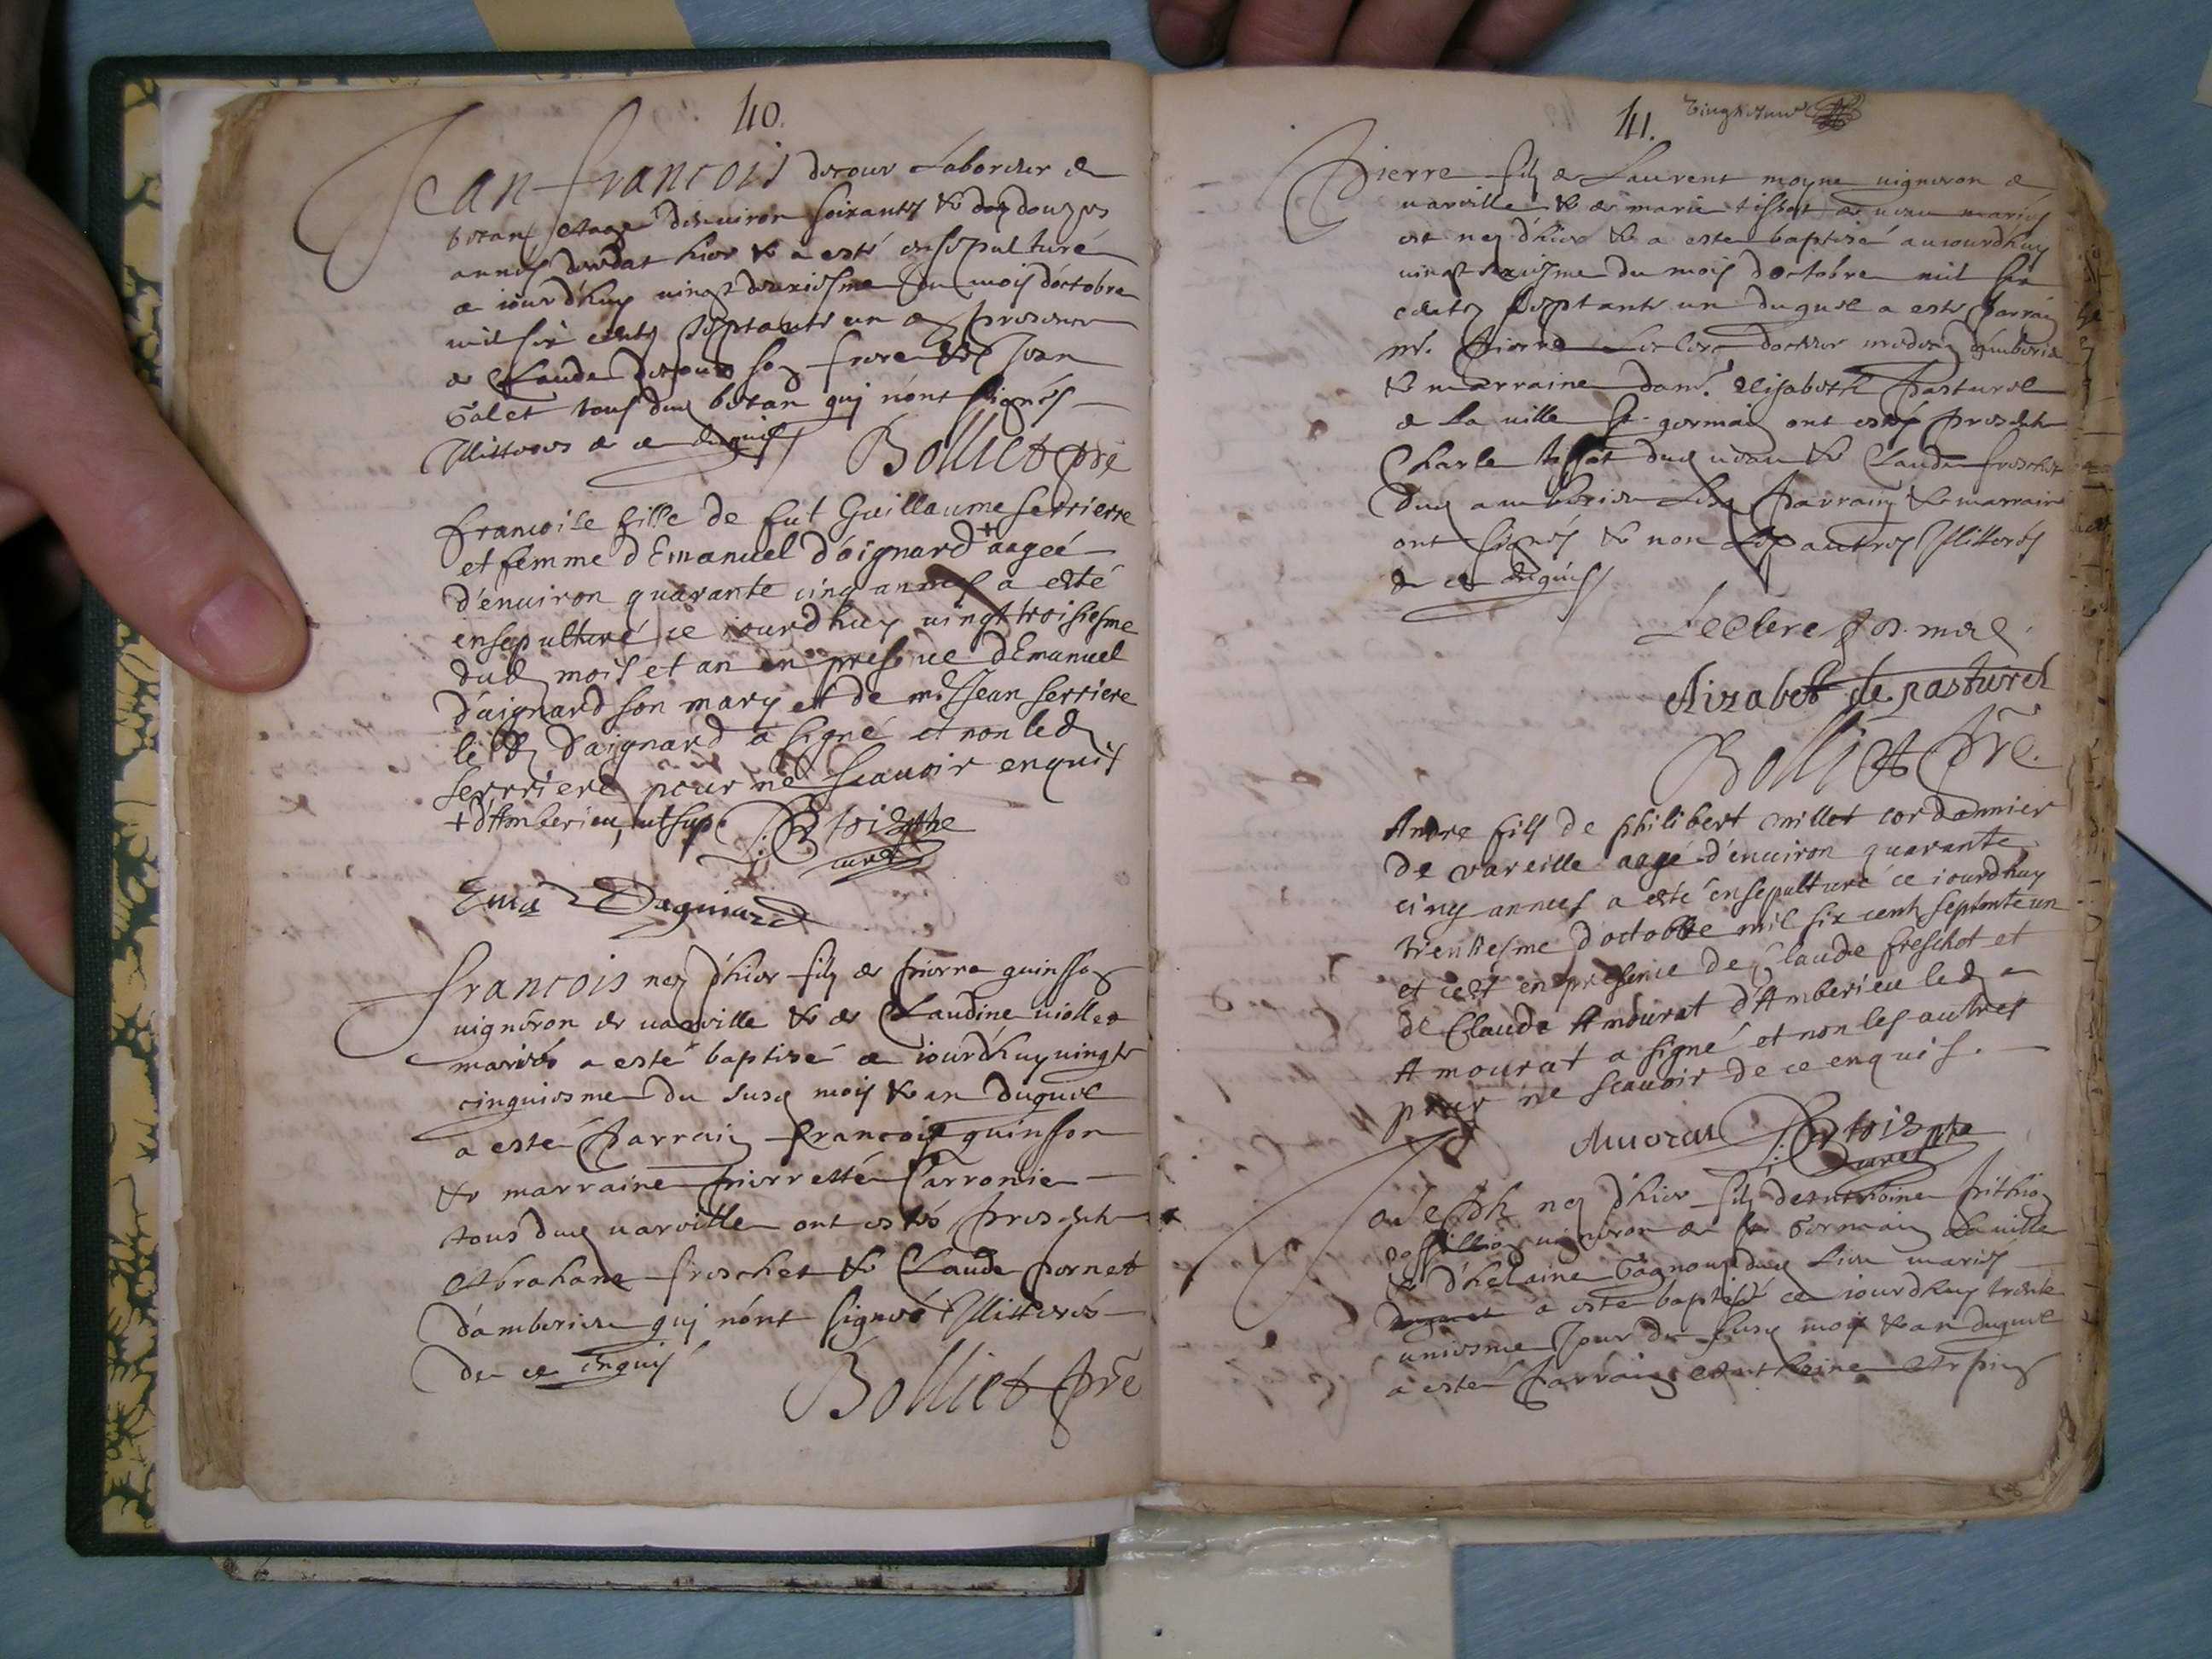 40.
Jean francois decour Laboreur de
betan aage d'enuiron soixante & douzes
annes deceda hier & a esté ensepulturé
ce iourd'huy uingt deuxiesme du mois d'octobre
mil six cents septante un en presence
de Claude decour son frere & Jean
Galet tous dud betan qui n'ont signés
Illitteres de ce enquis
Bolliet pre
francoise fille de fut Guillaume serriere
et femme d'Emanuel d'oignard + aageé
d'enuiron quarante cinq annees a esté
ensepulturé ce iourdhuy uingt troisiesme
dud mois et an en presence d'Emanuel
d'aignard son mary et de mr Jean serriere
led d'aignard a signé et non led
serriere pour ne scauoir enquis
+ d'Amberieu, ut sup
curé
Ema Daguiard
francois nez d'hier filz de pierre guinsson
uigneron de uareille & de Claudine uiollet
mariés a esté baptisé ce iourd'huy uingt
cinquiesme du susd mois & an duquel
a esté parrain francois guinsson
& marraine pierretté Carronie
tous dud uareille ont estés presents
Abraham freschet & Claude pornet
d'amberieu qui n'ont signés Illitterés
de ce enquis
Bolliet pre
41. uingt & une
Pierre filz de Laurent moyne uigneron de
uareille & de marie tissot de uaux mariés
est nez d'hier & a esté baptisé auiourd'huy
uingt sixiesme du mois d'octobre mil six
cents septante un duquel a esté parrain
mr. Pierre Le Clerc docteur medecin d'amberieu
& marraine dam. Elisabeth Pasturel
de La uille St germain ont estés presents
Charle tissot dud uaux & Claude freschot
dud amberieu Lesd parrain & marraine
ont signés & non Les autres Illitterés
de ce enquis
Leclerc
Elizabet de pasturel
Bolliet pre.
Andre fils de philibert millet cordonnier
de vareille aagé d'enuiron quarante
cinq annees a esté ensepulturé ce iourdhuy
trentiesme d'octobre mil six cents septante un
et cest en presence de Claude freschot et
de Claude Amourat d'Amberieu led
Amourat a signé et non les autres
pour ne scauoir de ce enquis.
Amorat
curé
Joseph nez d'hier filz de anthoine pithion
uigneron de St Germain La uille
& d'helaine Gagnoux dud Lieu mariés
a esté baptisé ce iourdhuy trente
uniesme Jour du susd mois & an duquel
a esté parrain anthoine Arpin